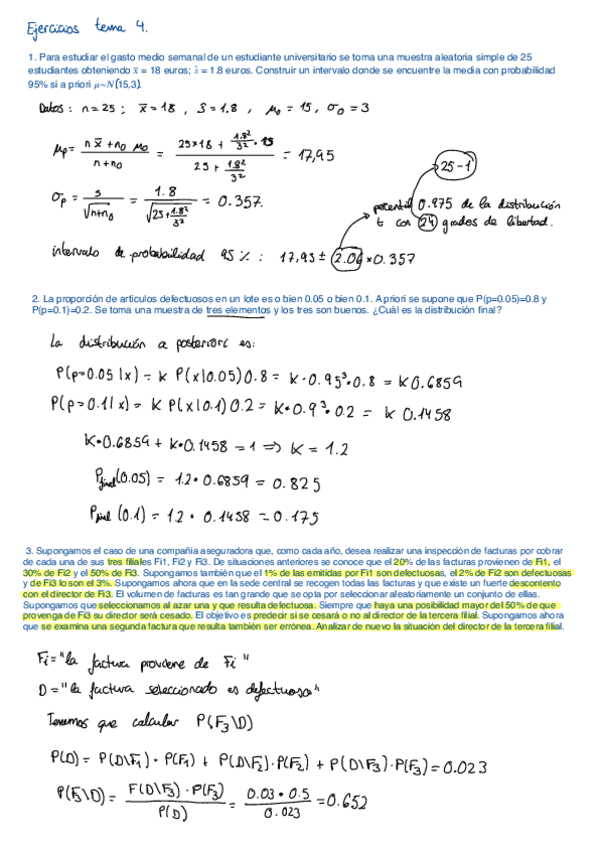 Ejercicios tema 4.
1. Para estudiar el gasto medio semanal de un estudiante universitario se toma una muestra aleatoria simple de 25
estudiantes obteniendo x̄ = 18 euros; ŝ = 1.8 euros. Construir un intervalo donde se encuentre la media con probabilidad
95% si a priori μ~N(15,3).
Datos: n = 25 ; x̄ = 18 , S = 1.8 , μ₀ = 15 , σ₀ = 3
μp = (n x̄ + n₀ μ₀) / (n + n₀) = (25×18 + 1.8²/3² · 15) / (25 + 1.8²/3²) = 17,95
25-1
σp = s / √(n+n₀) = 1.8 / √(25 + 1.8²/3²) = 0.357.
percentil 0.975 de la distribución
t con 24 grados de libertad.
intervalo de probabilidad 95 % : 17,93 ± 2.06 × 0.357
2. La proporción de artículos defectuosos en un lote es o bien 0.05 o bien 0.1. A priori se supone que P(p=0.05)=0.8 y
P(p=0.1)=0.2. Se toma una muestra de tres elementos y los tres son buenos. ¿Cuál es la distribución final?
La distribución a posteriori es:
P(p=0.05 | x) = k P(x | 0.05) 0.8 = k · 0.95³ · 0.8 = k 0.6859
P(p=0.1 | x) = k P(x | 0.1) 0.2 = k · 0.9³ · 0.2 = k 0.1458
k · 0.6859 + k · 0.1458 = 1 ⇒ k = 1.2
Pfinal (0.05) = 1.2 · 0.6859 = 0.825
Pfinal (0.1) = 1.2 · 0.1458 = 0.175
3. Supongamos el caso de una compañía aseguradora que, como cada año, desea realizar una inspección de facturas por cobrar
de cada una de sus tres filiales Fi1, Fi2 y Fi3. De situaciones anteriores se conoce que el 20% de las facturas provienen de Fi1, el
30% de Fi2 y el 50% de Fi3. Supongamos también que el 1% de las emitidas por Fi1 son defectuosas, el 2% de Fi2 son defectuosas
y de Fi3 lo son el 3%. Supongamos ahora que en la sede central se recogen todas las facturas y que existe un fuerte descontento
con el director de Fi3. El volumen de facturas es tan grande que se opta por seleccionar aleatoriamente un conjunto de ellas.
Supongamos que seleccionamos al azar una y que resulta defectuosa. Siempre que haya una posibilidad mayor del 50% de que
provenga de Fi3 su director será cesado. El objetivo es predecir si se cesará o no al director de la tercera filial. Supongamos ahora
que se examina una segunda factura que resulta también ser errónea. Analizar de nuevo la situación del director de la tercera filial.
Fi = "la factura proviene de Fi"
D = "la factura seleccionado es defectuosa"
Tenemos que calcular P(F₃\D)
P(D) = P(D\F₁) · P(F₁) + P(D\F₂) · P(F₂) + P(D\F₃) · P(F₃) = 0.023
P(F₃\D) = F(D\F₃) · P(F₃) / P(D) = 0.03 · 0.5 / 0.023 = 0.652